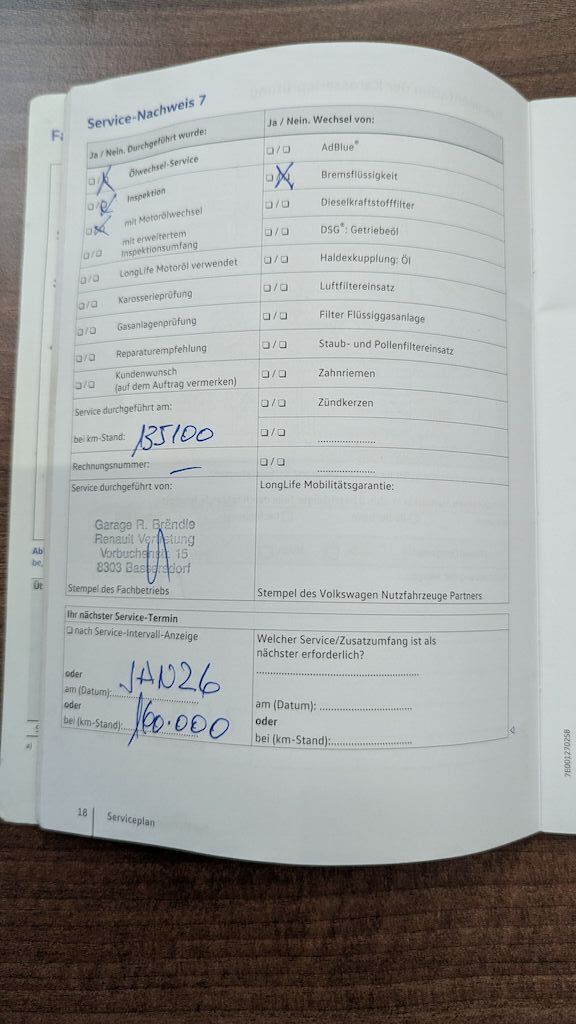 Service-Nachweis 7
Ja / Nein. Durchgeführt wurde:
Ölwechsel-Service
Inspektion
mit Motorölwechsel
mit erweitertem
Inspektionsumfang
LongLife Motoröl verwendet
Karosserieprüfung
Gasanlagenprüfung
Reparaturempfehlung
Kundenwunsch
(auf dem Auftrag vermerken)
Service durchgeführt am:
bei km-Stand: 135100
Rechnungsnummer: —
Ja / Nein. Wechsel von:
AdBlue®
Bremsflüssigkeit
Dieselkraftstofffilter
DSG®: Getriebeöl
Haldexkupplung: Öl
Luftfiltereinsatz
Filter Flüssiggasanlage
Staub- und Pollenfiltereinsatz
Zahnriemen
Zündkerzen
Service durchgeführt von:
Garage R. Brändle
Renault Vertretung
Vorbuchenstr. 15
8303 Bassersdorf
Stempel des Fachbetriebs
LongLife Mobilitätsgarantie:
Stempel des Volkswagen Nutzfahrzeuge Partners
Ihr nächster Service-Termin
nach Service-Intervall-Anzeige
oder
am (Datum): JAN26
oder
bei (km-Stand): 160.000
Welcher Service/Zusatzumfang ist als
nächster erforderlich?
am (Datum):
oder
bei (km-Stand):
18 Serviceplan
7E0012702SB